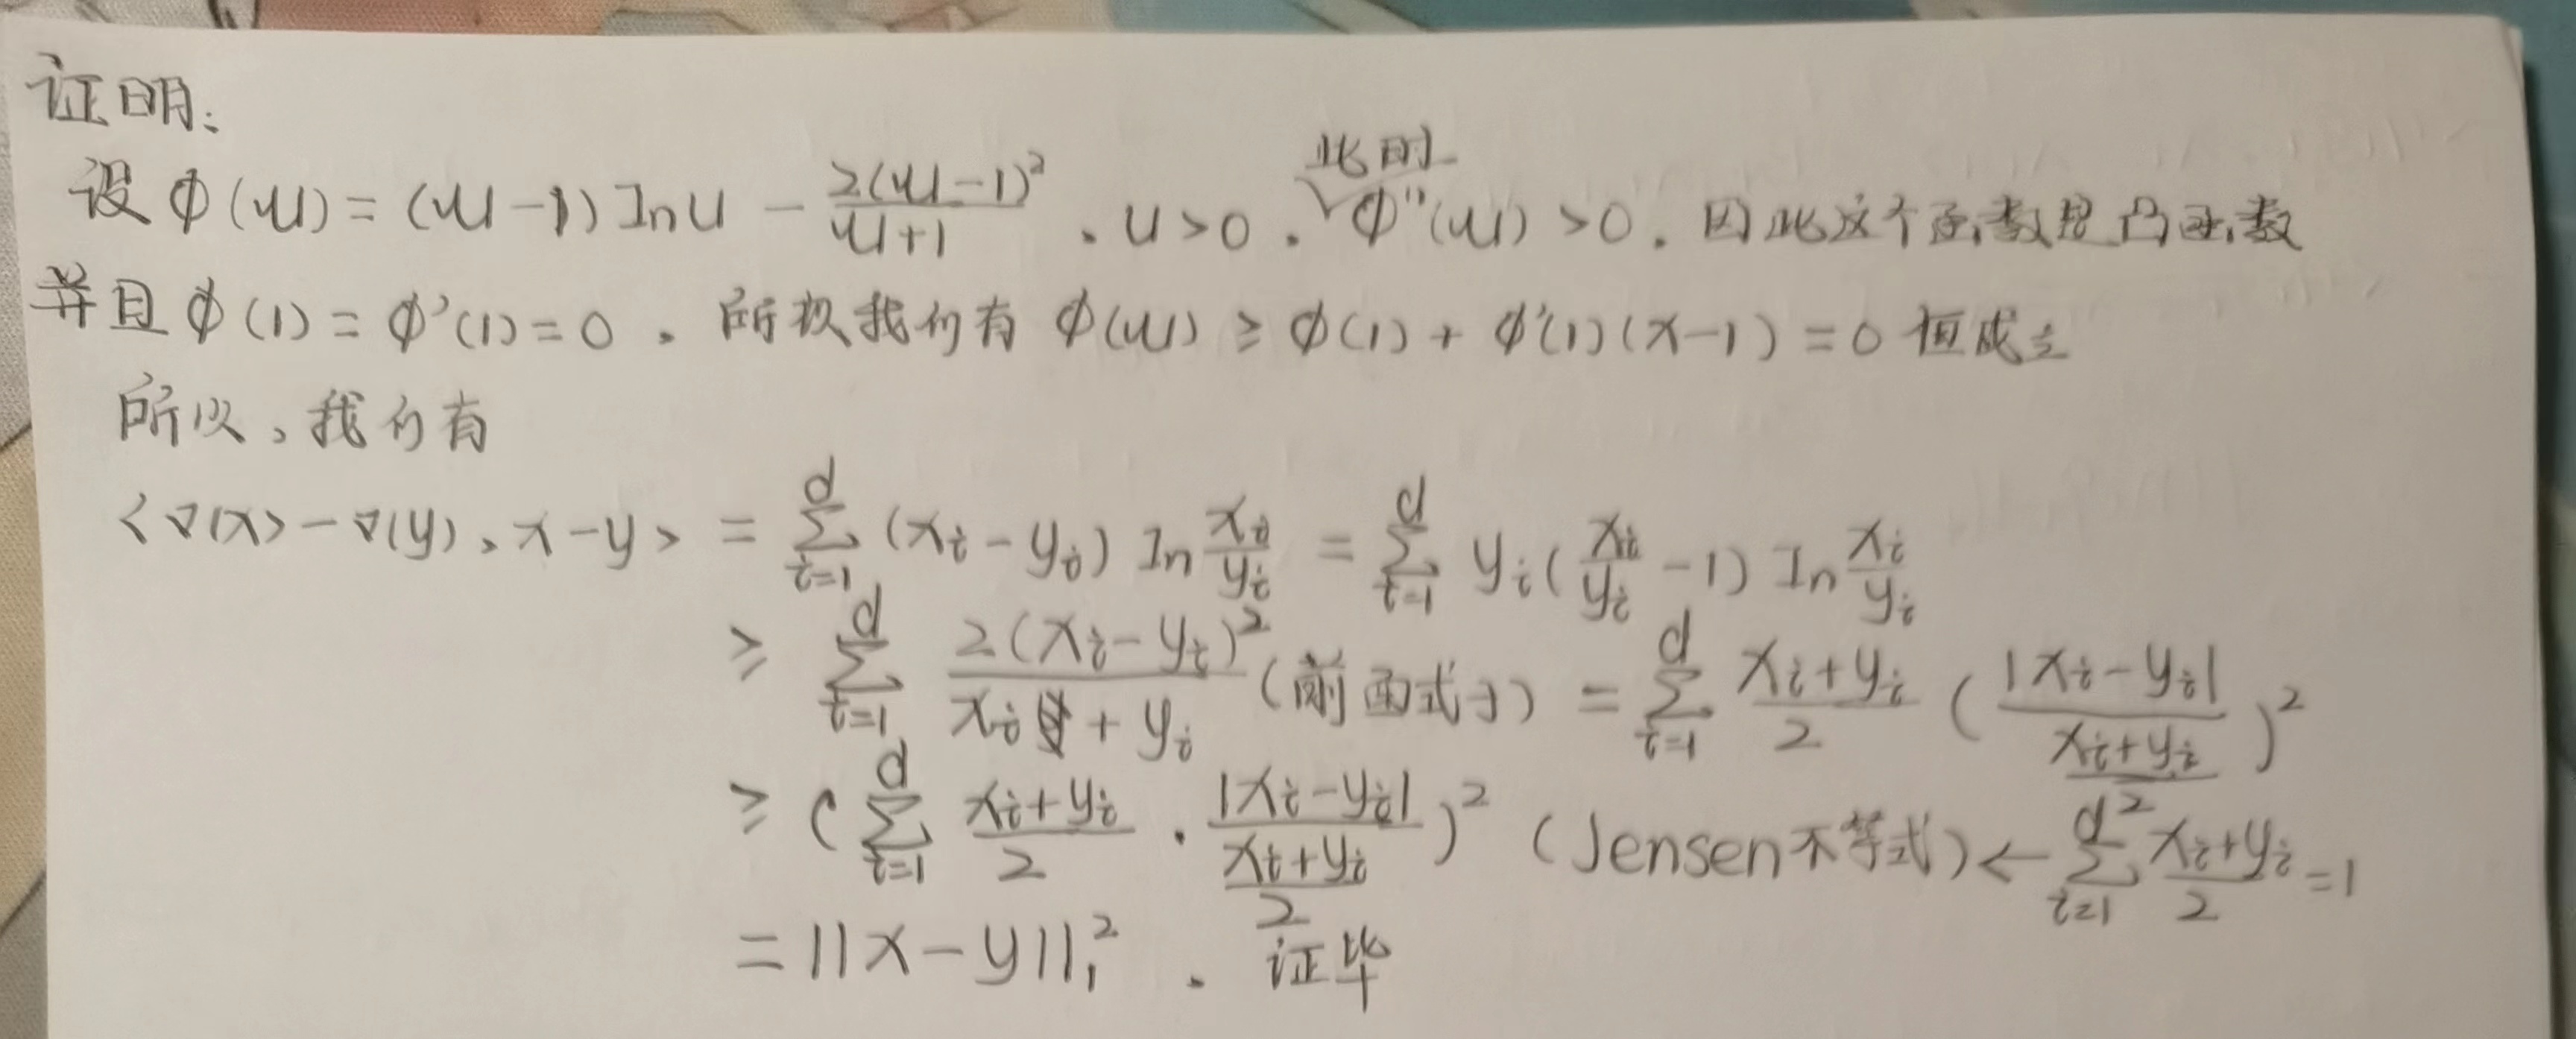 证明:
设 φ(u) = (u-1) ln u - 2(u-1)²/(u+1) , u>0 . 此时 φ''(u) >0 . 因此这个函数是凸函数
并且 φ(1) = φ'(1) = 0 . 所以我们有 φ(u) ≥ φ(1) + φ'(1)(x-1) = 0 恒成立
所以,我们有
<∇(x) - ∇(y), x-y> = ∑_{i=1}^{d} (x_i - y_i) ln x_i/y_i = ∑_{i=1}^{d} y_i (x_i/y_i - 1) ln x_i/y_i
≥ ∑_{i=1}^{d} 2(x_i - y_i)²/(x_i + y_i) (前面式子) = ∑_{i=1}^{d} (x_i+y_i)/2 (|x_i - y_i|/((x_i+y_i)/2))²
≥ (∑_{i=1}^{d} (x_i+y_i)/2 · |x_i - y_i|/((x_i+y_i)/2))² (Jensen不等式) ← ∑_{i=1}^{d} (x_i+y_i)/2 = 1
= ||x-y||₁² . 证毕